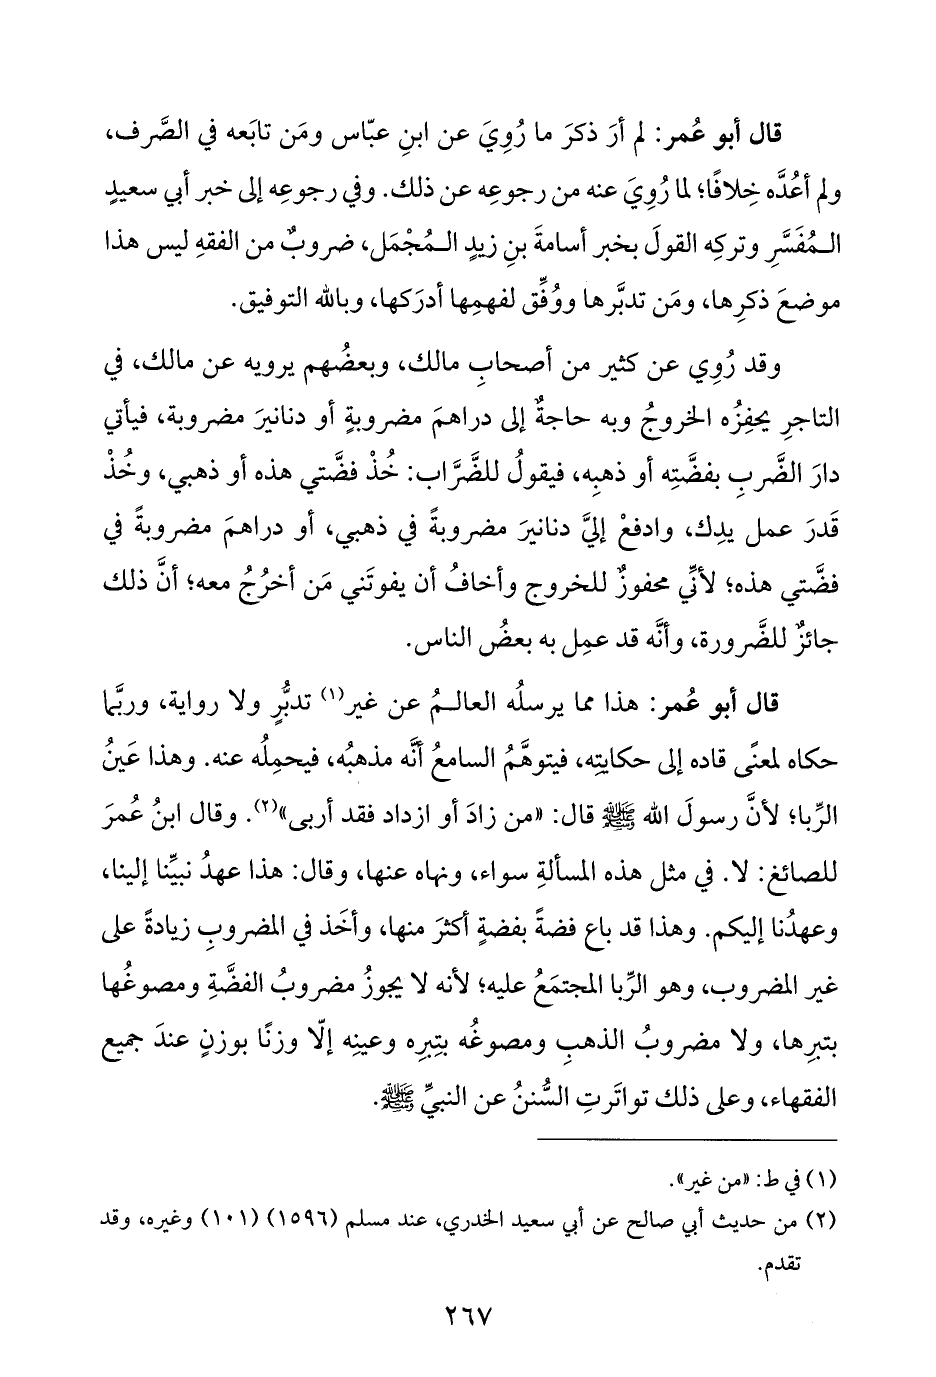 قال أبو عُمر: لم أرَ ذكرَ ما رُوِيَ عن ابنِ عبّاس ومَن تابَعه في الصَّرف،
ولم أعُدَّه خِلافًا؛ لما رُوِيَ عنه من رجوعِه عن ذلك. وفي رجوعِه إلى خبر أبي سعيدٍ
الـمُفَسَّرِ وتركِه القولَ بخبر أسامةَ بنِ زيدٍ الـمُجْمَل، ضروبٌ من الفقهِ ليس هذا
موضعَ ذكرِها، ومَن تدبَّرها ووُفِّق لفهمِها أدرَكها، وبالله التوفيق.
وقد رُوِي عن كثير من أصحابِ مالك، وبعضُهم يرويه عن مالك، في
التاجرِ يحفِزُه الخروجُ وبه حاجةٌ إلى دراهمَ مضروبةٍ أو دنانيرَ مضروبة، فيأتي
دارَ الضَّربِ بفضَّتِه أو ذهبِه، فيقولُ للضَّرَّاب: خُذْ فضَّتي هذه أو ذهبي، وخُذْ
قَدرَ عمل يدِك، وادفعْ إليَّ دنانيرَ مضروبةً في ذهبي، أو دراهمَ مضروبةً في
فضَّتي هذه؛ لأنِّي محفوزٌ للخروج وأخافُ أن يفوتَني مَن أخرُجُ معه؛ أنَّ ذلك
جائزٌ للضَّرورة، وأنَّه قد عمِل به بعضُ الناس.
قال أبو عُمر: هذا مما يرسلُه العالـمُ عن غير(١) تدبُّرٍ ولا رواية، وربَّما
حكاه لمعنًى قاده إلى حكايتِه، فيتوهَّمُ السامعُ أنَّه مذهبُه، فيحمِلُه عنه. وهذا عَينُ
الرِّبا؛ لأنَّ رسولَ الله ﷺ قال: «من زادَ أو ازداد فقد أربى»(٢). وقال ابنُ عمرَ
للصائغ: لا. في مثل هذه المسألةِ سواء، ونهاه عنها، وقال: هذا عهدُ نبيِّنا إلينا،
وعهدُنا إليكم. وهذا قد باع فضةً بفضةٍ أكثرَ منها، وأخَذ في المضروبِ زيادةً على
غير المضروب، وهو الرِّبا المجتمَعُ عليه؛ لأنه لا يجوزُ مضروبُ الفضَّةِ ومصوغُها
بتبرِها، ولا مضروبُ الذهبِ ومصوغُه بتِبرِه وعينِه إلّا وزنًا بوزنٍ عندَ جميع
الفقهاء، وعلى ذلك تواتَرتِ السُّننُ عن النبيِّ ﷺ.
(١) في ط: «من غير».
(٢) من حديث أبي صالح عن أبي سعيد الخدري، عند مسلم (١٥٩٦) (١٠١) وغيره، وقد
تقدم.
٢٦٧